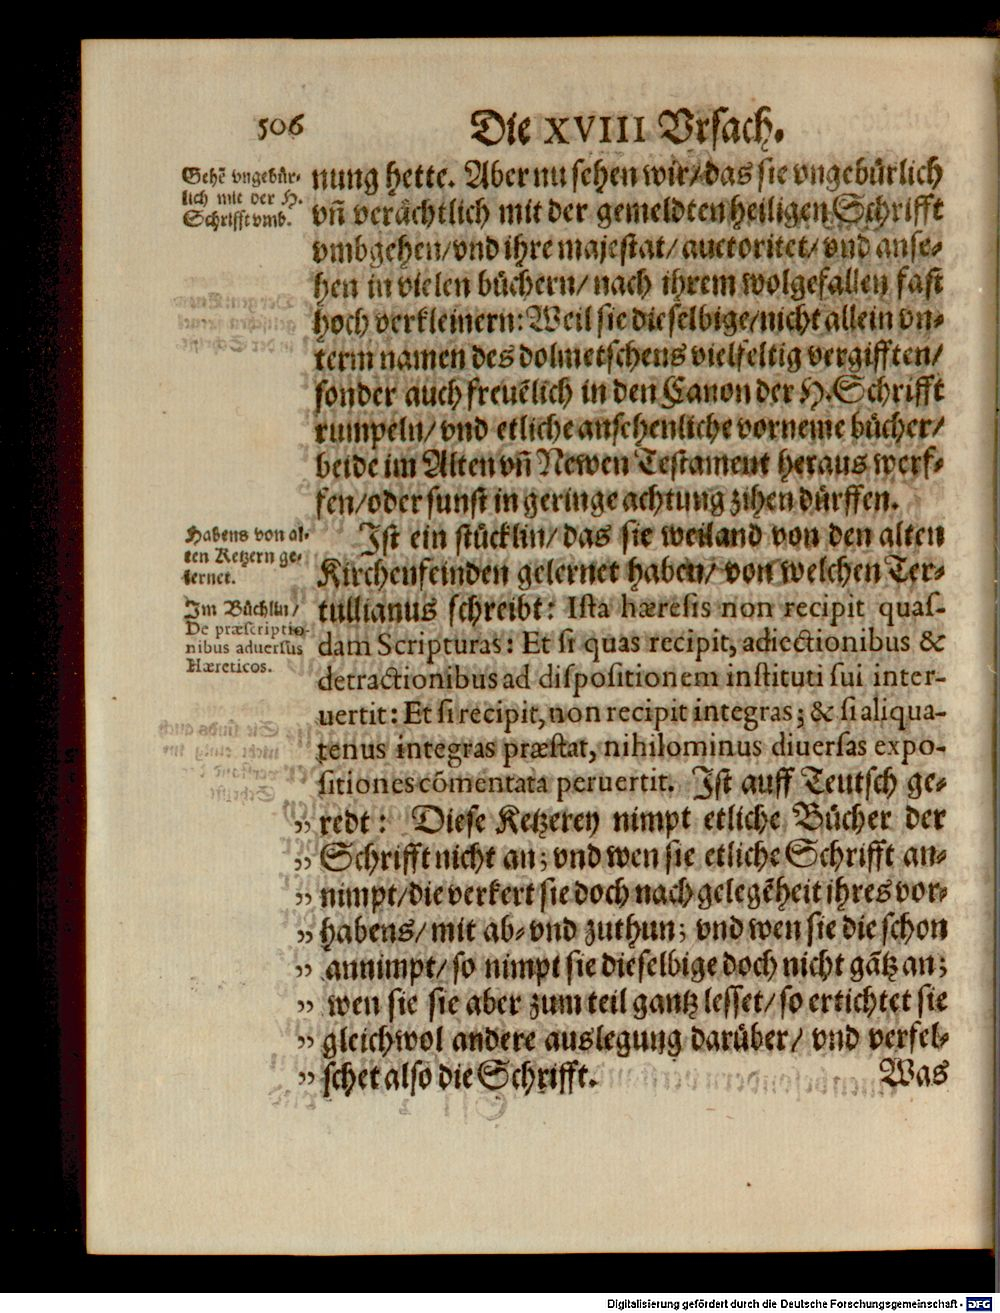 506
Die XVIII Vrsach.
Gehē vngebür-
lich mit der H.
Schrifft vmb.
nung hette. Aber nu sehen wir/ das sie vngebürlich
vñ verächtlich mit der gemeldten heiligen Schrifft
vmbgehen/ vnd ihre majestat/ auctoritet/ vnd anse-
hen in vielen büchern/ nach ihrem wolgefallen fast
hoch verkleinern: Weil sie dieselbige/ nicht allein vn-
term namen des dolmetschens vielfeltig vergifften/
sonder auch freuēlich in den Canon der H. Schrifft
rumpeln/ vnd etliche ansehenliche vorneme bücher/
beide im Alten vñ Newen Testament heraus werf-
fen/ oder sunst in geringe achtung zihen dürffen.
Habens von al-
ten Ketzern ge-
lernet.
Im Büchlin/
De præscriptio-
nibus aduersus
Hæreticos.
Ist ein stücklin/ das sie weiland von den alten
Kirchenfeinden gelernet haben/ von welchen Ter-
tullianus schreibt: Ista hæresis non recipit quas-
dam Scripturas: Et si quas recipit, adiectionibus &
detractionibus ad dispositionem instituti sui inter-
uertit: Et si recipit, non recipit integras; & si aliqua-
tenus integras præstat, nihilominus diuersas expo-
sitiones cōmentata peruertit. Ist auff Teutsch ge-
„ redt: Diese Ketzerey nimpt etliche Bücher der
„ Schrifft nicht an; vnd wen sie etliche Schrifft an-
„ nimpt/ die verkert sie doch nach gelegēheit ihres vor-
„ habens/ mit ab- vnd zuthun; vnd wen sie die schon
„ annimpt/ so nimpt sie dieselbige doch nicht gātz an;
„ wen sie sie aber zum teil gantz lesset/ so ertichtet sie
„ gleichwol andere auslegung darüber/ vnd verfel-
„ schet also die Schrifft.
Was
Digitalisierung gefördert durch die Deutsche Forschungsgemeinschaft - DFG